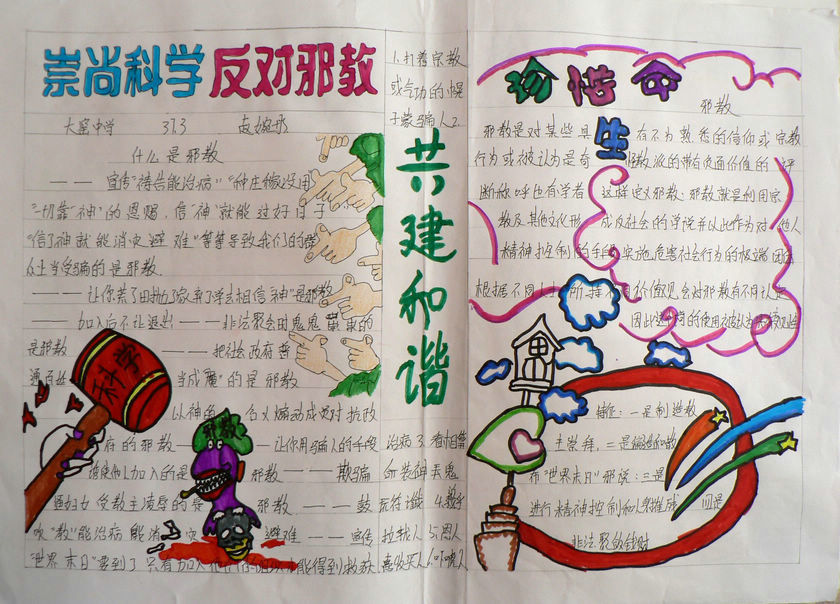 崇尚科学 反对邪教
大窑中学 37.3
什么是邪教
——宣传“祷告能治病”“种庄稼没用
“一切靠‘神’的恩赐,信‘神’就能过好日子
“信了神就能消灾避难”等等导致我们的群
众上当受骗的是邪教.
——让你荒了田抛了家弃了学去相信“神”是邪教
——加入后不让退出——非法聚会由鬼鬼祟祟的
是邪教——把社会政府普
通百姓当成魔的是邪教
以神的名义煽动成员对抗政
府的邪教——让你用骗人的手段
诱使他人加入的是邪教——欺骗
妇女受教主凌辱的是邪教——鼓
吹“教”能治病能消灾避难——宣传
“世界末日”要到了只有加入他们 能得到救赦
科学
邪教
1.打着宗教
或气功的幌
子蒙骗人2.
治病3.看相算
命装神弄鬼
拉拢人5.恩人
共建和谐
珍惜生命
邪教
邪教是对某些具有不为熟悉的信仰或宗教
行为或被认为是奇怪教派的带有负面价值的评
断称呼也有学者这样定义邪教:邪教就是利用宗
教及其他文化形成反社会的学说并以此作为对他人
精神控制的手段实施危害社会行为的极端团体
根据不同人士所择不同价值观会对邪教有不同认定
因此这个词的使用被认为
特征:一是制造教
主崇拜,二是编造和散
布“世界末日”邪说:三是
进行精神控制和人身摧残 四是
非法聚敛钱财